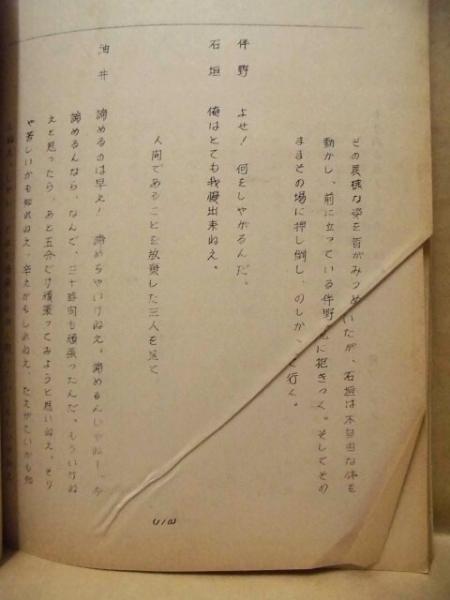 その異様な姿を皆がみつめていたが、石垣は不自由な体を
動かし、前に立っている伴野 に抱きつく。そしてその
ままその場に押し倒し、のしか って行く。
伴野 よせ! 何をしやがるんだ。
石垣 俺はとても我慢出来ねえ。
人間であることを放棄した三人を見て
油井 諦めるのは早え! 諦めちゃいけねえ。諦めるんじゃねー。
諦めるんなら、なんで、三十時間も頑張ったんだ。もういけね
えと思ったら、あと五分だけ頑張ってみようと思いねえ。そり
や苦しいかも知れねえ、辛えかもしれねえ、たえがていかも知